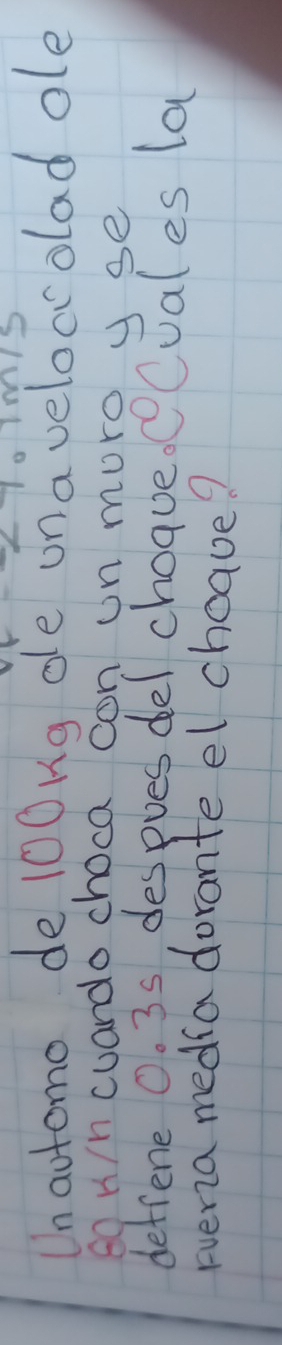 = -29.1m/s
Un automo de 100Kg de una velocidad de
80 K/h cuando choca con un muro y se
detiene 0.3s despues del choque. ¿Cual es la
Fuerza media durante el choque?